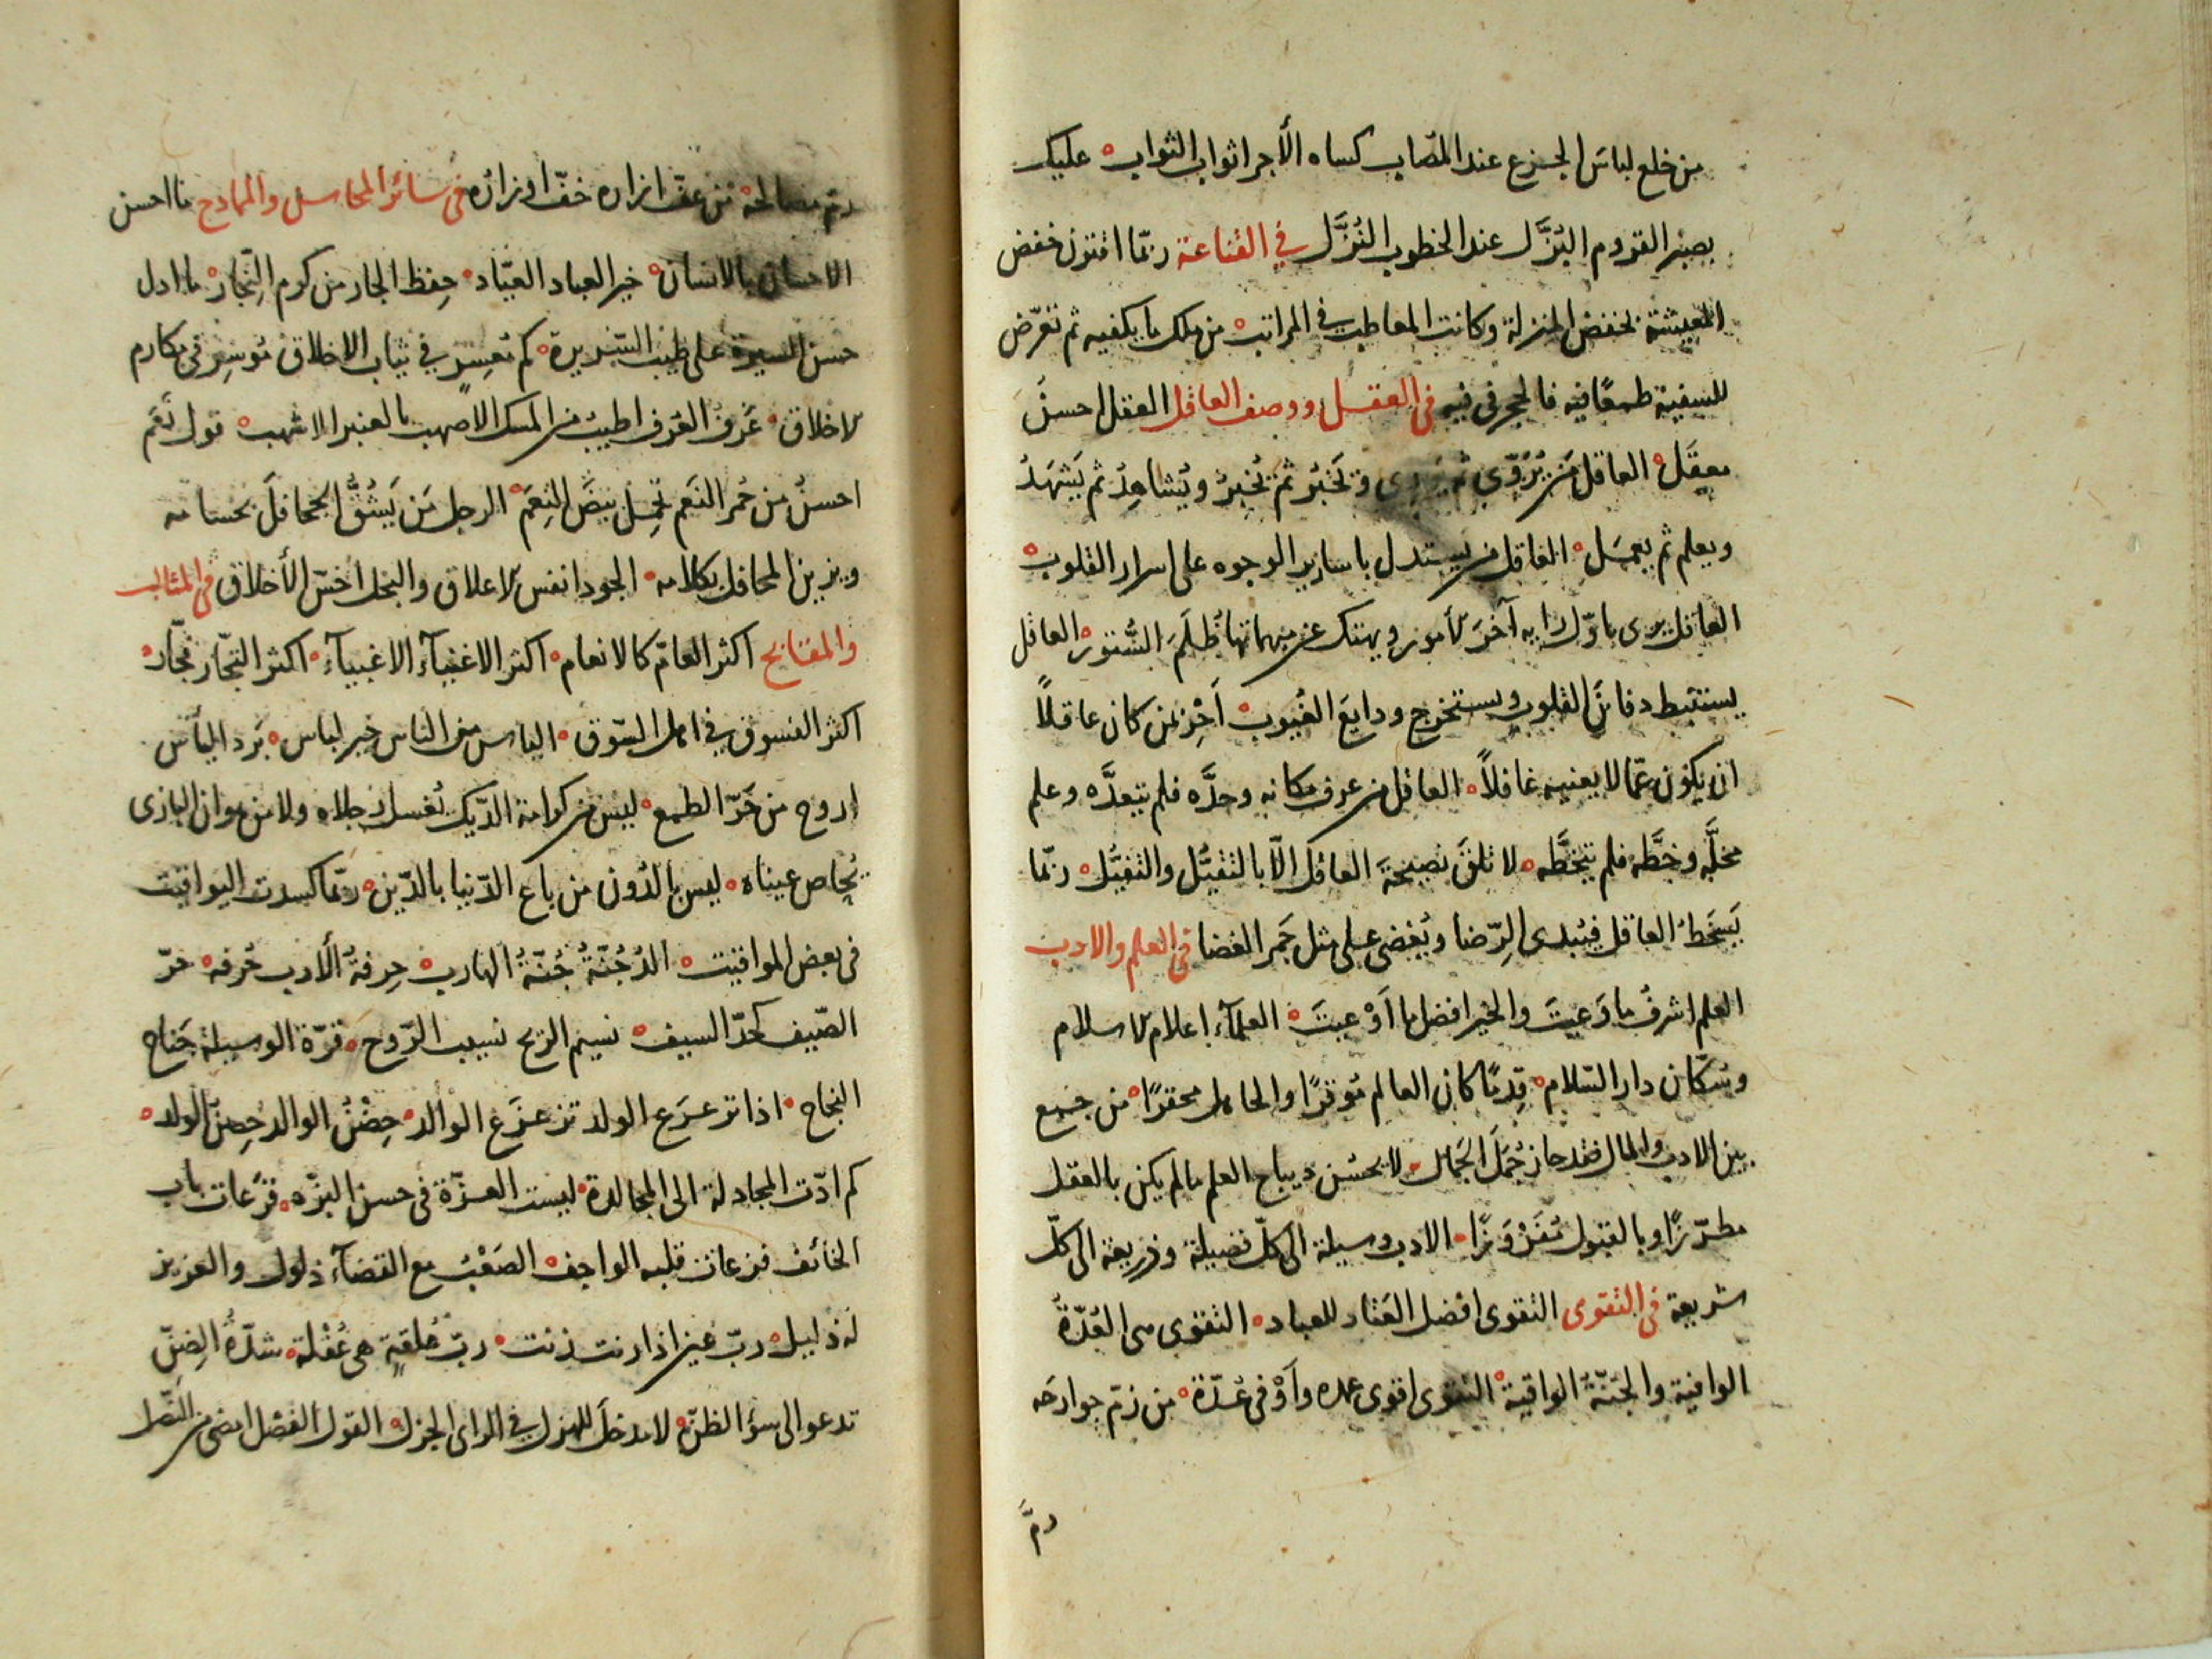 من خلع لباسَ الجزع عند المصاب كساه الأجر اثواب الثواب ه عليك
بصبر القروم البُزَّل عند الخطوب النُزَّل في القناعة ربّما اقترن خفض
المعيشة بخفض المنزلة وكانت المعاطب في المراتب ه من ملك ما يكفيه ثم تعرّض
للسفينة طمعًا فيه فالحجر في فيه في العقل ووصف العاقل العقل احسنُ
معقَل ه العاقل مَن يُرَوّى ثم يَروى و يَخبُر ثم يُخبِرُ ويُشاهِدُ ثم يَشهَدُ
ويعلم ثم يعمل ه العاقل من يستدل باسارير الوجوه على اسرار القلوب ه
العاقل يرى باوّل رايه آخرَ الأمور ويهتك عن مبهماتها ظُلَمَ السُّتور ه العاقل
يستنبط دفائنَ القلوب ويستخرج ودايعَ الغيوب ه اَحْرِ بمن كان عاقلاً
ان يكون عمّا لا يعنيه غافلاً ه العاقل من عرف مكانه وحدَّه فلم يتعدَّه وعلم
محلَّه وخطَّه فلم يتخطَّه ه لا تلقَ نصيحةَ العاقل الّا بالتقبُّل والتقيُّل ه ربّما
يَسخَطُ العاقل فيُبدى الرِّضا ويُغضى على مثل جَمر الغضا في العلم والادب
العلم اشرفُ ما وَعيتَ والخير افضل ما اَوْعيتَ ه العلمآء اعلام الاسلام
وسكّان دار السّلام ه قِدمًا كان العالم مُوقرًا والجاهل محقرًا ه من جمع
بين الادب والمال فقد حاز جُمَلَ الجَمال ه لا يحسُن ديباج العلم ما لم يكن بالعقل
مطرّزًا وبالقبول مُفَرْوَزًا ه الادب وسيلة الى كلّ فضيلة وذريعة الى كلّ
شريعة في التقوى التقوى افضل العَتاد للعباد ه التقوى هى العُدّةُ
الوافية والجُنّةُ الواقية ه التقوى اقوى عمده وأَوْفى عُدّة ه من زمّ جوارحه
رمَّ
رمّ مصالحه من عفّ ازاره خفّ اوزاره في سائر المحاسن والممادح ما احسن
الاحسان بالانسان ه خير العباد العبّاد ه حِفظ الجار من كرم النِّجار ه ما ادل
حسن السيرة على طيب السّريرة ه كم مُعسِرٍ في ثياب الاخلاق مُوسِرٌ في مكارم
الاخلاق ه عَرفُ العُرف اطيبُ من المسك الاصهب بالعنبر الاشهب ه قول نَعَم
احسنُ من حُمر النَعَم تحمل بيضَ النِعَم ه الرجل مَن يَشُقُّ الجحافلَ بحسامه
ويزين المحافل بكلامه ه الجود انفس الاعلاق والبخل اخسّ الأخلاق في المثالب
والمقابح اكثر العامّ كالانعام ه اكثر الاغنيآء الاغبيآء ه اكثر التجّار فجّار ه
اكثر الفسوق في اهل السّوق ه الياس من الناس خير لباس ه بَرد اليأس
اروح من حَرّ الطمع ه ليس من كرامة الدّيك تُغسل رجلاه ولا من هوان البازى
يُحاص عيناه ه ليس بالدُون من باع الدّنيا بالدّين ه ربّما كسدت اليواقيت
في بعض المواقيت ه الدُجُنّةُ جُنّةُ الهارب ه حِرفةُ الأدب حُرفه ه حرّ
الصّيف كحدّ السيف ه نسيم الريح نسيب الرّوح ه قوّة الوسيلة جَناح
النجاح ه اذا ترعرَع الولد تزعزَع الوالد ه حِضْنُ الوالد حِصنُ الولد ه
كم ادّت المجادلة الى المجالدة ه ليست العزّة في حسن البزّه ه قرَعات باب
الخائف فزعات قلبه الواجف ه الصَعْبُ مع القضآء ذلول والعزيز
له ذليل ه ربّ عين اذا رنت زنت ه ربّ مُلقةٍ هى عُقْلة ه شدّةُ الضِنّ
تدعو الى سؤ الظنّ ه لا مدخلَ للهزل في الراى الجزل ه القول الفصْل امضى من النَصْل